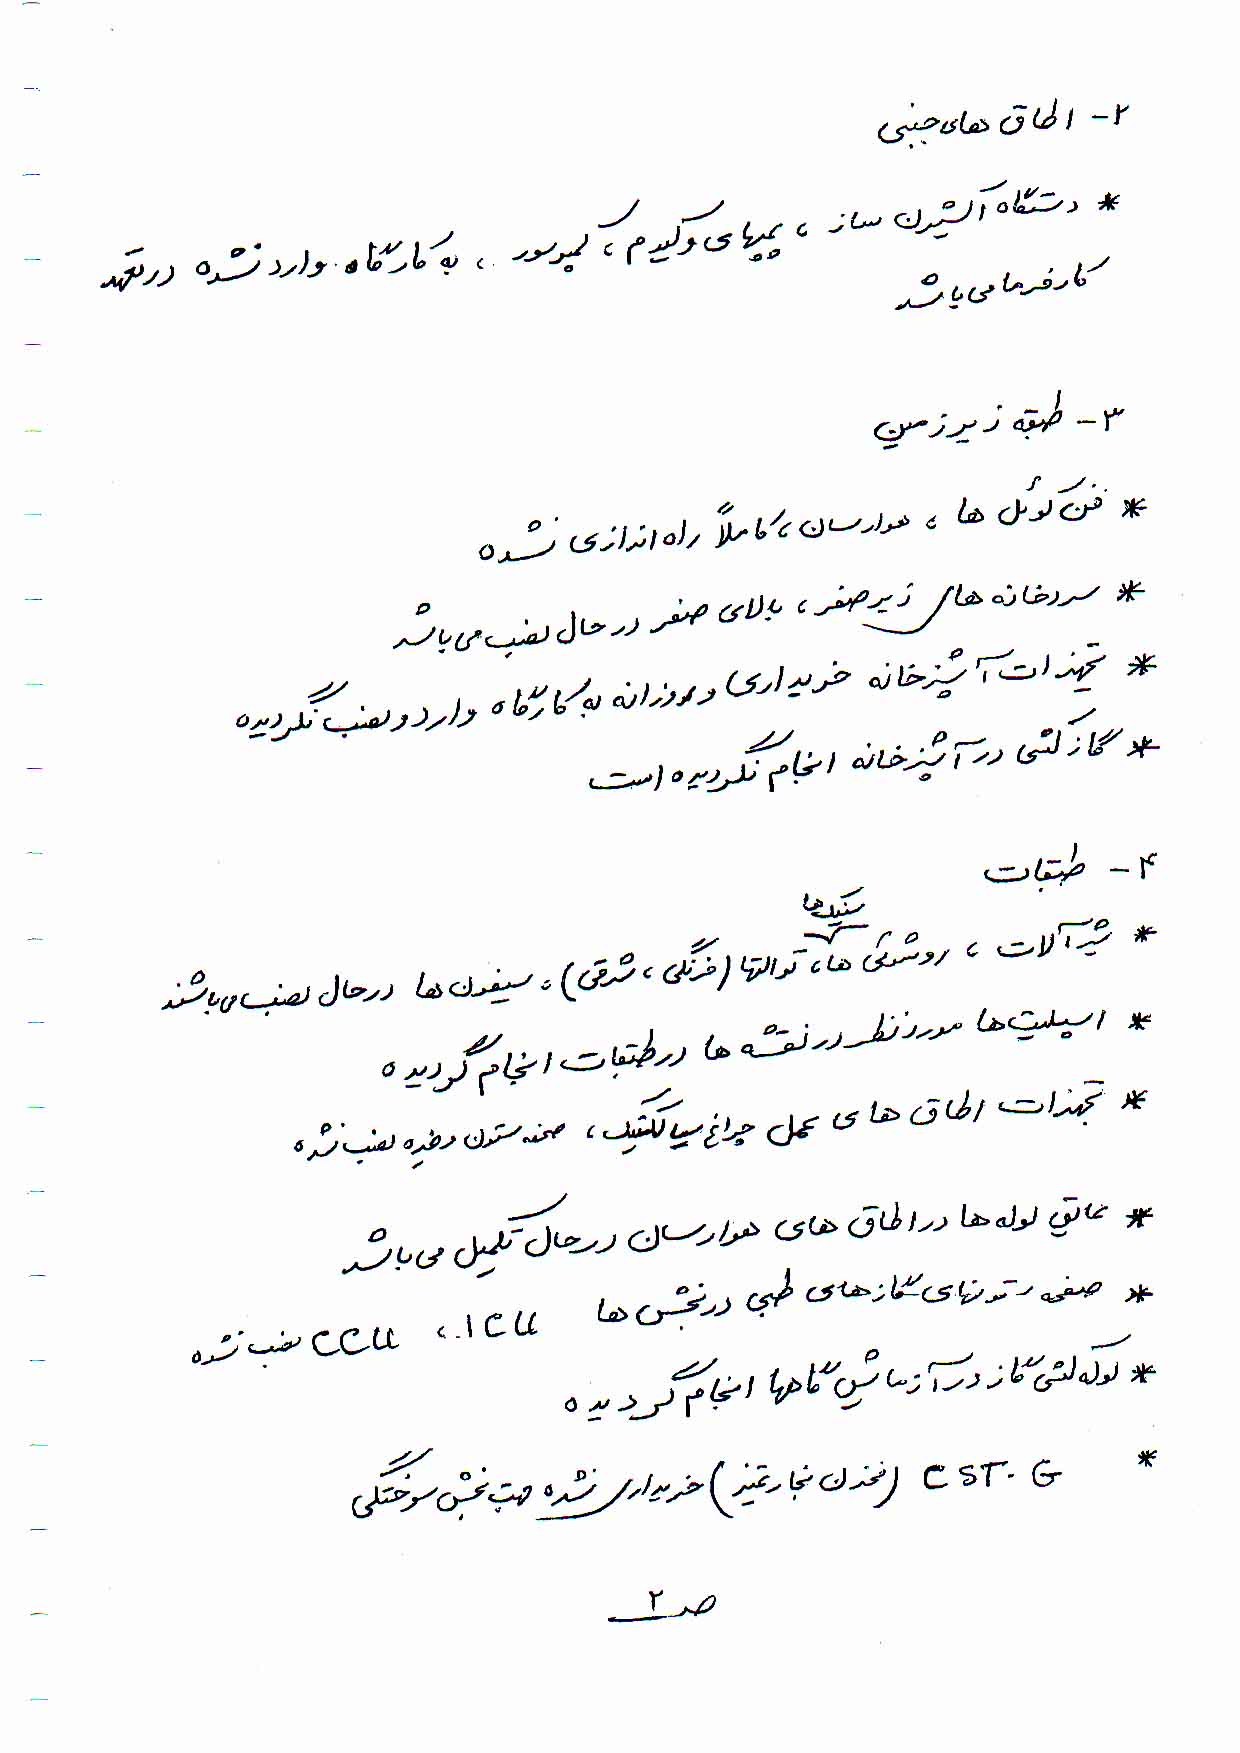 ۲- اطاق های جنبی
* دستگاه اکسیژن ساز ، پمپهای وکیوم ، کمپرسور ، به کارگاه وارد نشده در تعهد
کارفرما می باشد
۳- طبقه زیرزمین
* فن کوئل ها ، هوارسان ، کاملاً راه اندازی نشده
* سردخانه های زیر صفر ، بالای صفر در حال نصب می باشد
* تجهیزات آشپزخانه خریداری و روزانه به کارگاه وارد و نصب نگردیده
* گازکشی در آشپزخانه انجام نگردیده است
۴- طبقات
سینک ها
* شیرآلات ، روشوئی ها ، توالتها (فرنگی ، شرقی) ، سیفون ها در حال نصب می باشند
* اسپلیت ها مورد نظر در نقشه ها در طبقات انجام گردیده
* تجهیزات اطاق های عمل چراغ سیالکتیک ، ستون وغیره نصب نشده
* عایق لوله ها در اطاق های هوارسان در حال تکمیل می باشد
* صفحه ستونهای گازهای طبی در بخش ها ICU ، CCU نصب نشده
* لوله کشی گاز در آزمایش گاهها انجام گردیده
* C ST. G (مخزن بخار تمیز) خریداری نشده جهت بخش سوختگی
ص ۲